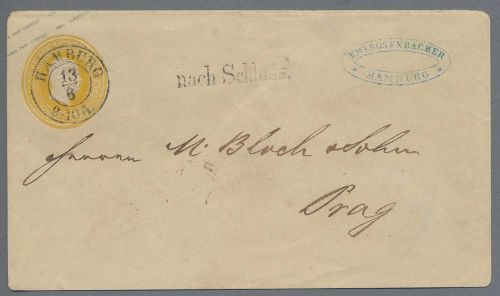 HAMBURG
13
6
9-10A.
nach Schluss.
EM. ROSENBACHER
HAMBURG
Herren M. Bloch & Sohn
Prag